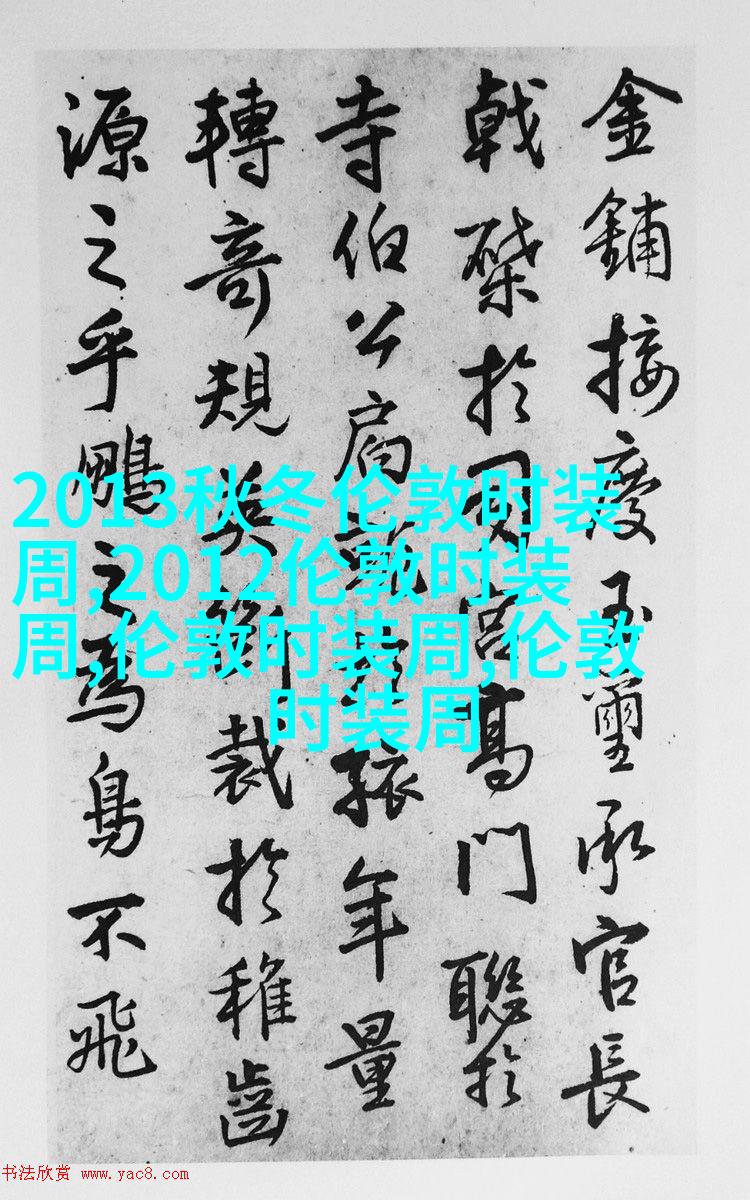 金鋪接慶玉璽承官長
戟於宮高門聯於
寺伯公扃年量
轉奇規裁於稚齒
源之乎鵬之為鳥不飛
2013秋冬伦敦时装
周,2012伦敦时装
周,伦敦时装周,伦敦
时装周
书法欣赏 www.yac8.com